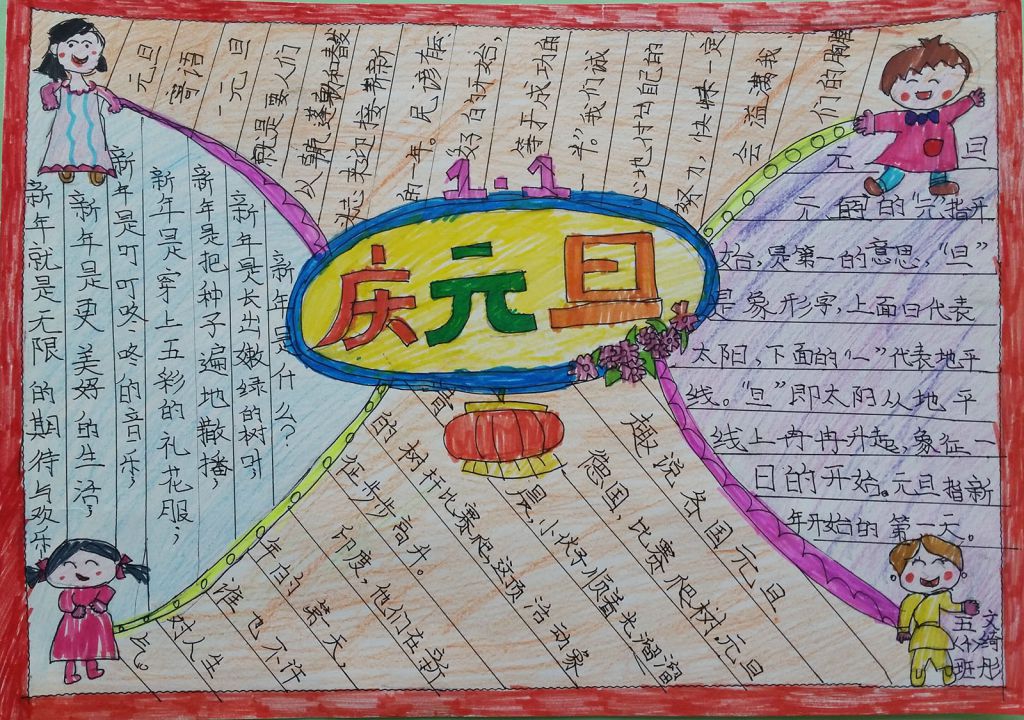 1·1
庆元旦
元旦
寄语
一元旦
就是要人们
状态来迎接着新
的一年。民谚有云
好的开始,
等于成功的
一半。"我们诚
心地付出自己的
努力,快乐一定
会溢满我
们的胸膛
新年是什么?
新年是长出嫩绿的树叶,
新年是把种子遍地散播,
新年是穿上五彩的礼花服;
新年是叮叮咚咚的音乐;
新年是更美好的生活;
新年就是无限的期待与欢乐
元 旦
元的的"元"指开
始,是第一的意思,"旦"
是象形字,上面日代表
太阳,下面的"一"代表地平
线。"旦"即太阳从地平
线上冉冉升起,象征一
日的开始。元旦指新
年开始的第一天。
趣说各国元旦
德国,比赛爬树。元旦
清晨,小伙子顺着光溜溜
的树杆比赛爬,这项活动象
征步步高升。
印度,他们在新
年的第一天,
谁也不许
对人生
气。
五(火)班
文绮彤